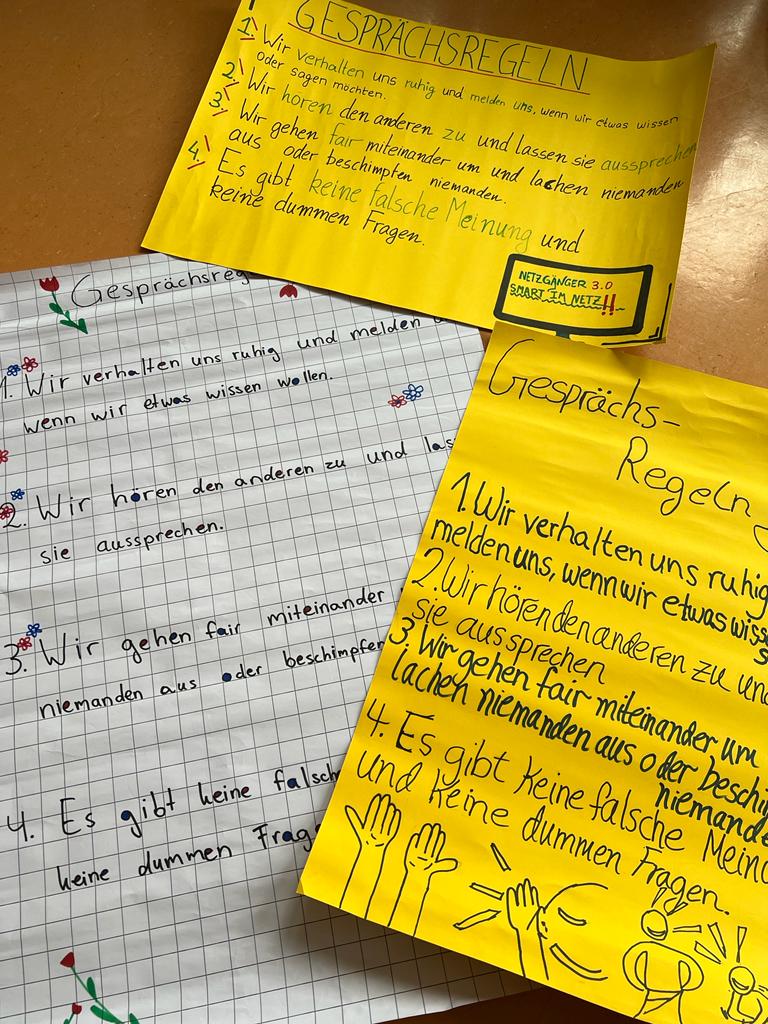 GESPRÄCHSREGELN
1. Wir verhalten uns ruhig und melden uns, wenn wir etwas wissen
oder sagen möchten.
2. Wir hören den anderen zu und lassen sie aussprechen
3. Wir gehen fair miteinander um und lachen niemanden
aus oder beschimpfen niemanden.
4. Es gibt keine falsche Meinung und
keine dummen Fragen.
NETZGÄNGER 3.0
SMART IM NETZ!!
Gesprächsreg
1. Wir verhalten uns ruhig und melden
wenn wir etwas wissen wollen.
2. Wir hören den anderen zu und las
sie aussprechen.
3. Wir gehen fair miteinander
niemanden aus oder beschimpfen
4. Es gibt keine falsch
keine dummen Frag
Gesprächs-
Regeln
1. Wir verhalten uns ruhig
melden uns, wenn wir etwas wiss
2. Wir hören den anderen zu und
sie aussprechen
3. Wir gehen fair miteinander um
lachen niemanden aus oder beschi
niemande
4. Es gibt keine falsche Meinu
und keine dummen Fragen.